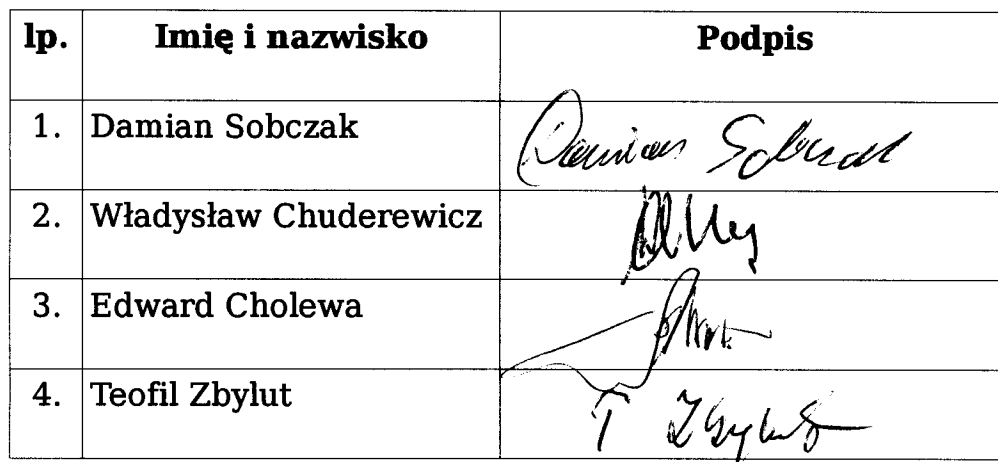 lp. Imię i nazwisko Podpis
1. Damian Sobczak Damian Sobczak
2. Władysław Chuderewicz
3. Edward Cholewa
4. Teofil Zbylut T Zbylut